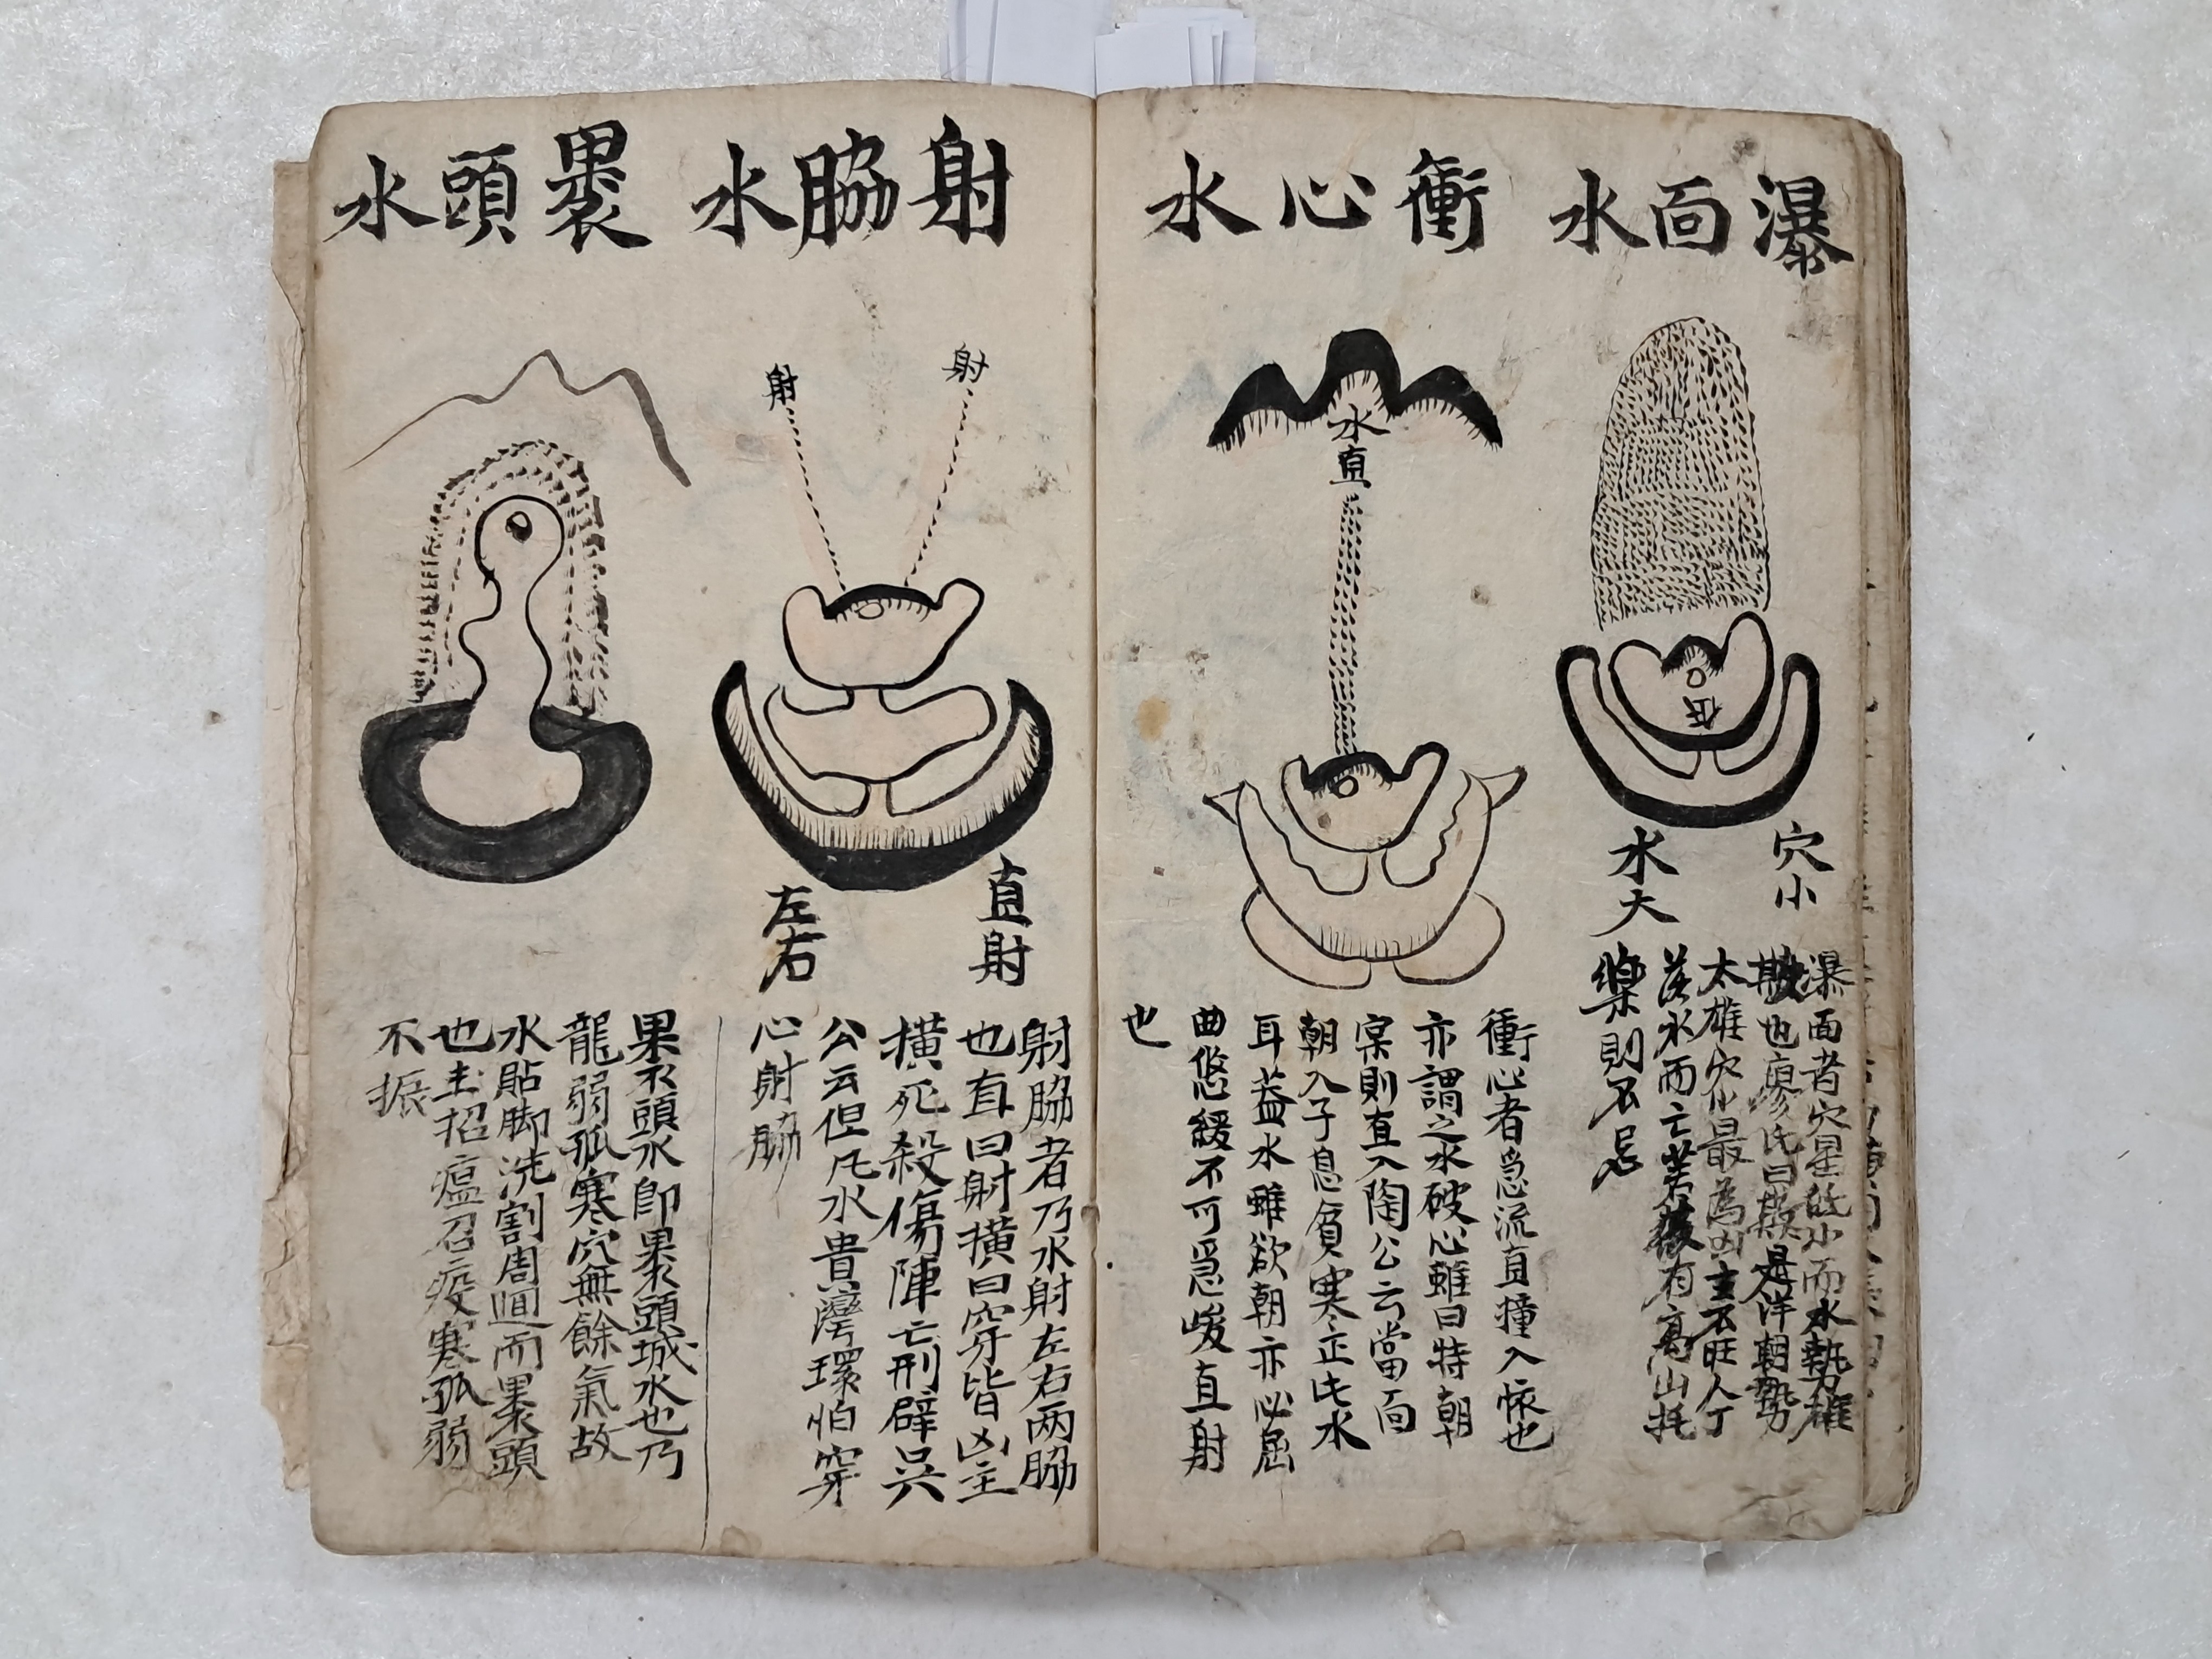 瀑面水
衝心水
射脇水
裹頭水
穴小
水大
低
瀑面者穴星低小而水勢雄
也廖氏曰洋朝勢
太雄穴小最為凶主不旺人丁
落水而亡若後有髙山托
樂則不忌
水直
衝心者急流直撞入懷也
亦謂之水破心雖曰特朝
則直入陶公云當面
朝入子息貧寒正此水
耳蓋水雖欲朝亦必屈
曲悠緩不可急峻直射
也
射
射
直射
左右
射脇者乃水射左右两脇
也直曰射横曰穿皆凶主
横死殺傷陣亡刑辟
公云但凡水貴灣環怕穿
心射脇
裹頭水卽裹頭城水也乃
龍弱孤寒穴無餘氣故
水貼脚洗割周圍而裹頭
也主招瘟召疫寒孤弱
不振